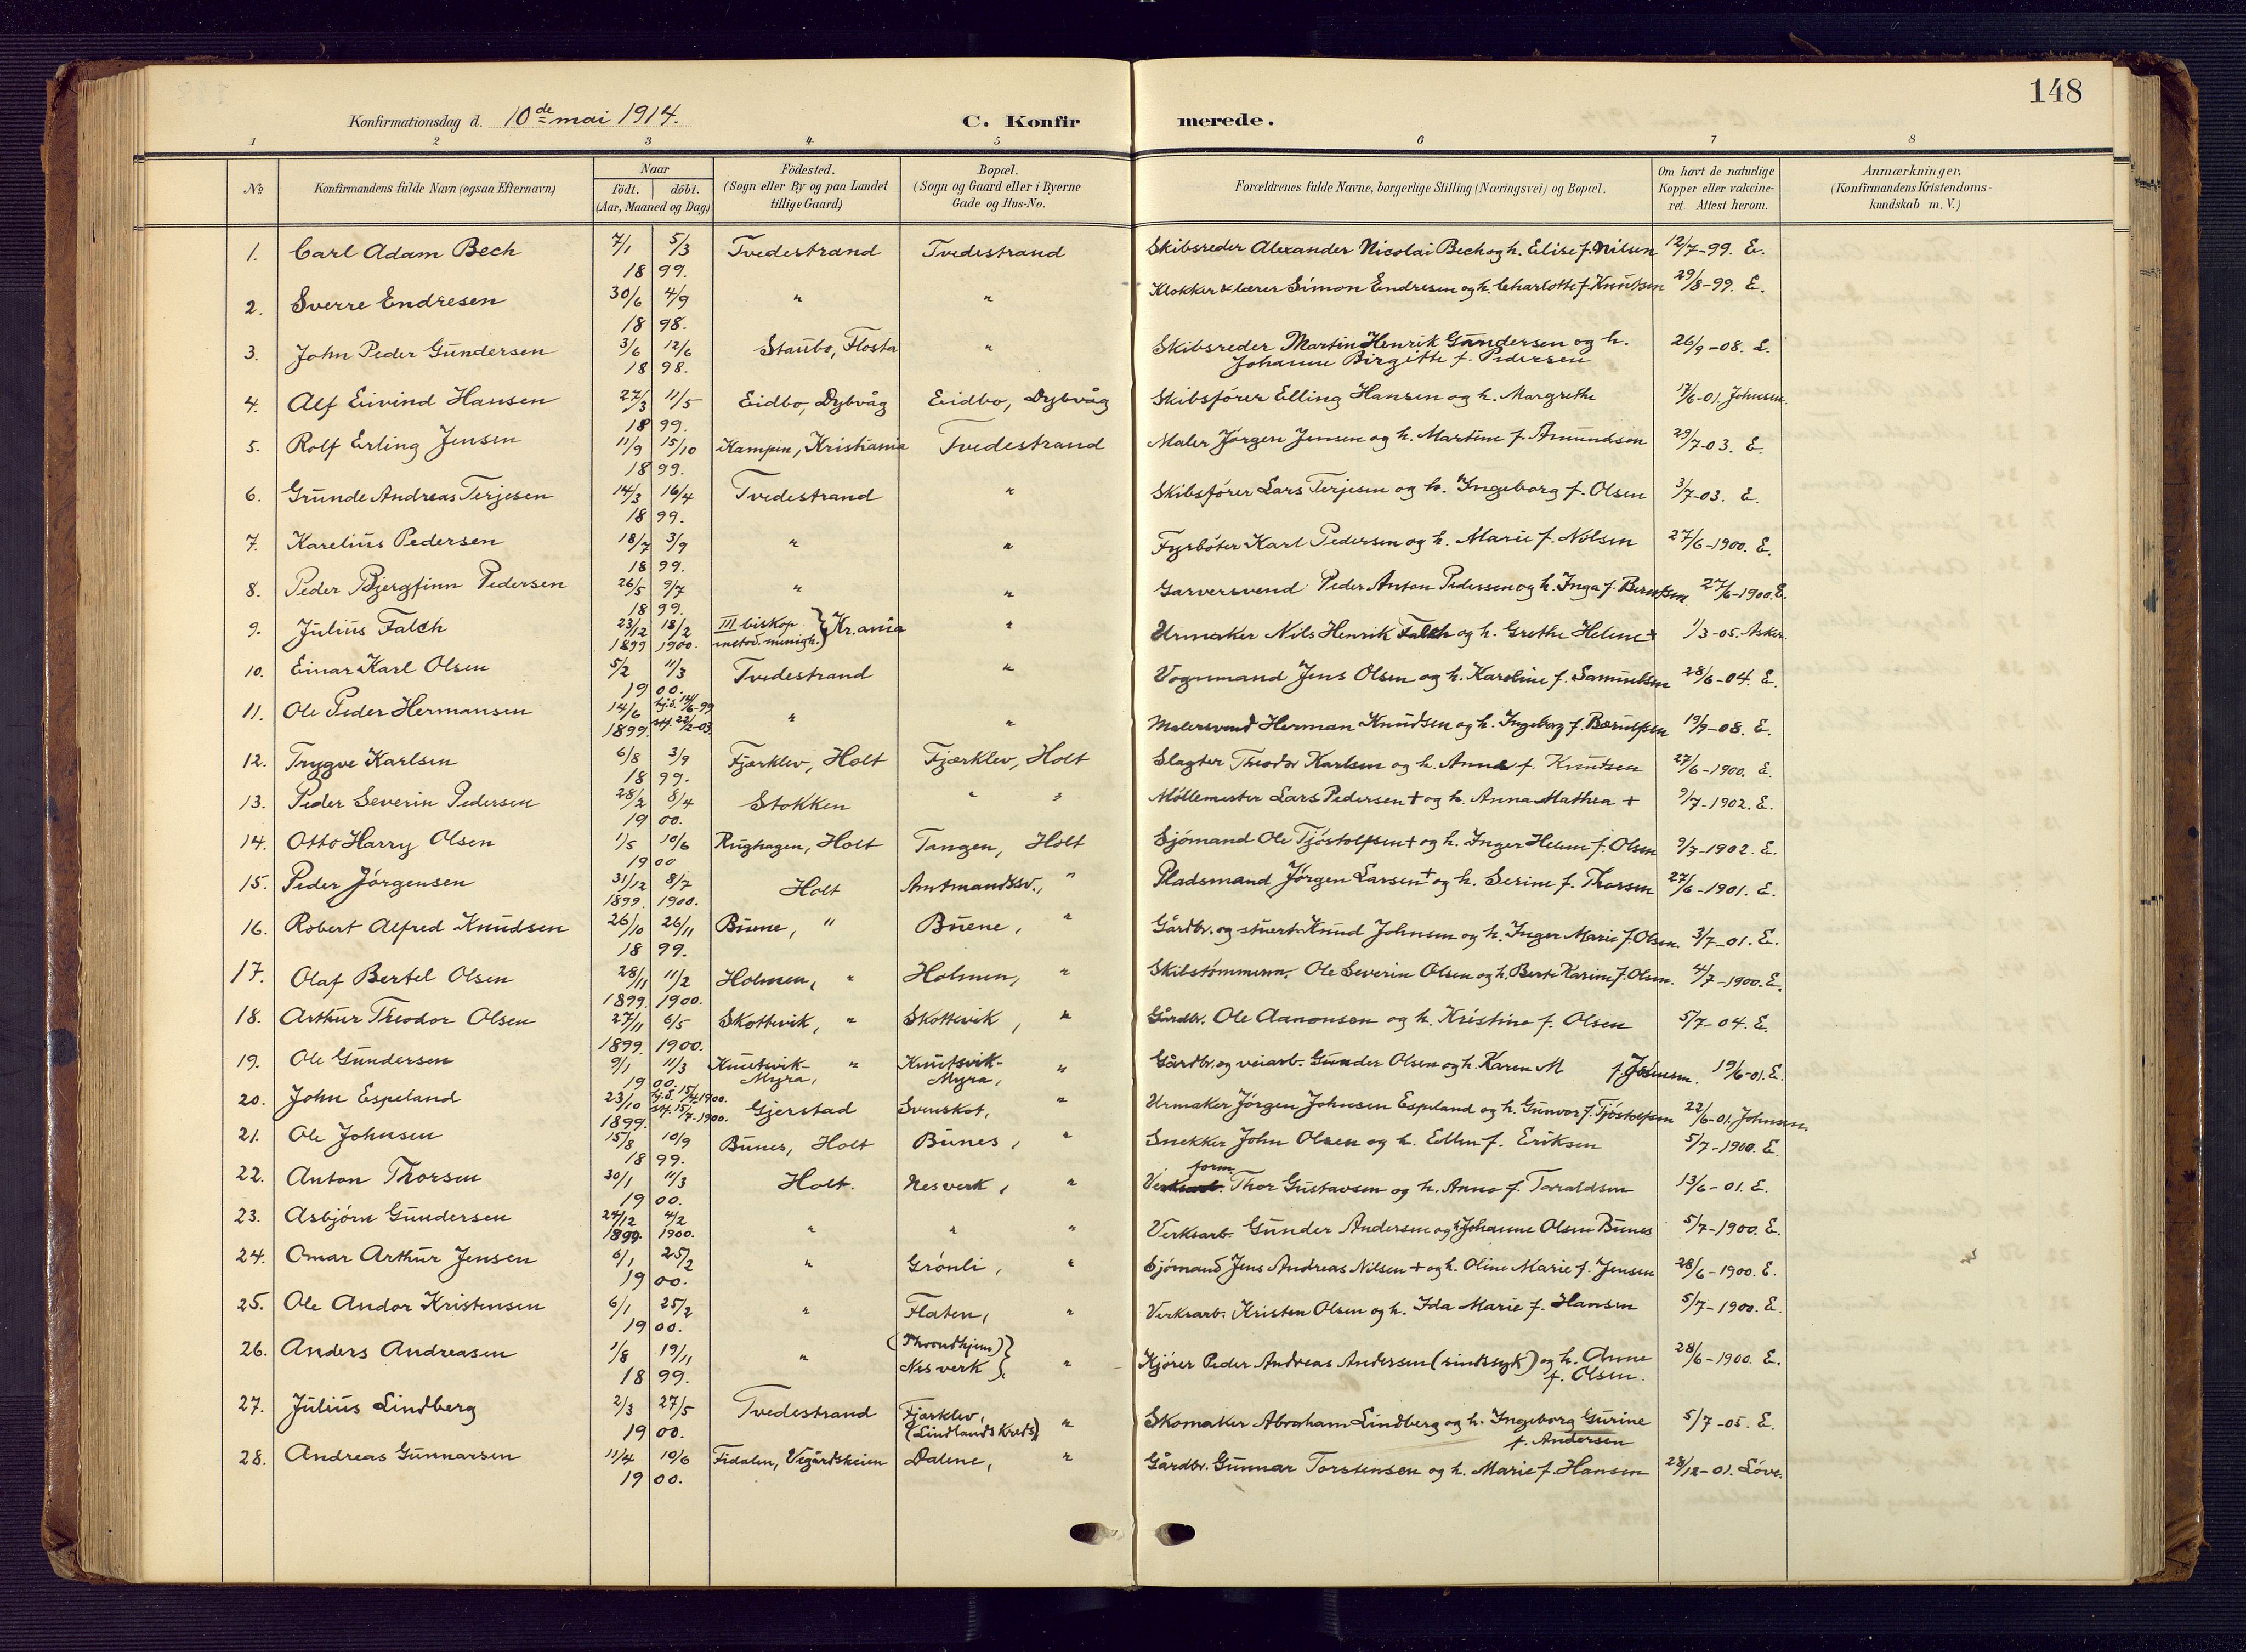 148
Konfirmationsdag d. 10de mai 1914. C. Konfirmerede.
1 2 3 4 5 6 7 8
No Konfirmandens fulde Navn (ogsaa Efternavn) Naar födt. döbt. (Aar, Maaned og Dag) Födested. (Sogn eller By og paa Landet tillige Gaard) Bopæl. (Sogn og Gaard eller i Byerne Gade og Hus-No. Forældrenes fulde Navne, borgerlige Stilling (Næringsvei) og Bopæl. Om havt de naturlige Kopper eller vakcineret. Attest herom. Anmærkninger. (Konfirmandens Kristendomskundskab m. V.)
1. Carl Adam Bech 7/1 5/3 1899. Tvedestrand Tvedestrand Skibsreder Alexander Nicolai Bech og h. Elise f. Nilsen 12/7-99. E.
2. Sverre Endresen 30/6 4/9 1898. " " Klokker & lærer Simon Endresen og h. Charlotte f. Knutsen 29/8-99. E.
3. John Peder Gundersen 3/6 12/6 1898. Staubo, Flosta " Skibsreder Martin Henrik Gundersen og h. Johanne Birgitte f. Pedersen 26/9-08. E.
4. Alf Eivind Hansen 27/3 11/5 1899. Eidbo, Dybvåg Eidbo, Dybvåg Skibsfører Elling Hansen og h. Margrethe 17/6-01. Johnsen.
5. Rolf Erling Jensen 11/9 15/10 1899. Kampen, Kristiania Tvedestrand Maler Jørgen Jensen og h. Martine f. Amundsen 29/7-03. E.
6. Grunde Andreas Terjesen 14/3 16/4 1899. Tvedestrand " Skibsfører Lars Terjesen og h. Ingeborg f. Olsen 3/7-03. E.
7. Karelius Pedersen 18/7 3/9 1899. " " Fyrbøter Karl Pedersen og h. Marie f. Nilsen 27/6-1900. E.
8. Peder Bjergfinn Pedersen 26/5 9/7 1899. " " Garversvend Peder Anton Pedersen og h. Inga f. Berntsen 27/6-1900. E.
9. Julius Falch 23/12 18/2 1899 1900. III biskop. metod. menigh. } Kr.ania " Urmaker Nils Henrik Falch og h. Grethe Helene + 1/3-05. Asker.
10. Einar Karl Olsen 5/2 11/3 1900. Tvedestrand " Vognmand Jens Olsen og h. Karoline f. Samuelsen 28/6-04. E.
11. Ole Peder Hermansen 14/6 1899. hj.d. 14/6-99 stf. 22/2-03. " " Malersvend Herman Knudsen og h. Ingeborg f. Bærulfsen 19/9-08. E.
12. Trygve Karlsen 6/8 3/9 1899. Fjærklev, Holt Fjærklev, Holt Slagter Theodor Karlsen og h. Anna f. Knutsen 27/6-1900. E.
13. Peder Severin Pedersen 28/2 8/4 1900. Stokken " " Møllemester Lars Pedersen + og h. Anna Mathea + 9/7-1902. E.
14. Otto Harry Olsen 1/5 10/6 1900 Rughagen, Holt Tangen, Holt Sjømand Ole Tjøstolfsen + og h. Inger Helene f. Olsen 9/7-1902. E.
15. Peder Jørgensen 31/12 8/7 1899. 1900. Holt Amtmandssv., " Pladsmand Jørgen Larsen + og h. Serine f. Thorsen 27/6-1901. E.
16. Robert Alfred Knudsen 26/10 26/11 1899. Buene, " Buene, " Gårdbr. og stuert Knud Johnsen og h. Inger Marie f. Olsen. 3/7-01. E.
17. Olaf Bertel Olsen 28/11 11/2 1899. 1900. Holmen, " Holmen, " Skibstømmerm. Ole Severin Olsen og h. Berte Karine f. Olsen. 4/7-1900. E.
18. Arthur Theodor Olsen 27/11 6/5 1899. 1900. Skottevik, " Skottevik, " Gårdbr. Ole Aanonsen og h. Kristine f. Olsen 5/7-04. E.
19. Ole Gundersen 9/1 11/3 1900. Knutsvik-Myra, " Knutsvik-Myra, " Gårdbr. og veiarb. Gunder Olsen og h. Karen M f. Johnsen. 19/6-01. E.
20. John Espeland 23/10 1899. hj.d. 15/4-1900. stf. 15/7-1900. Gjerstad Svenskot, " Urmaker Jørgen Johnsen Espeland og h. Gunvor f. Tjøstolfsen 22/6-01. Johnsen.
21. Ole Johnsen 15/8 10/9 1899. Bunes, Holt Bunes, " Snekker John Olsen og h. Ellen f. Eriksen 5/7-1900. E.
22. Anton Thorsen 30/1 11/3 1900. Holt. Nesverk, " form. Thor Gustavsen og h. Anne f. Taraldsen 13/6-01. E.
23. Asbjørn Gundersen 24/12 4/2 1899. 1900. " " " Verksarb. Gunder Andersen og h. Johanne Olsen Bunes 5/7-1900. E.
24. Omar Arthur Jensen 6/1 25/2 1900. " Grønli, " Sjømand Jens Andreas Nilsen + og h. Oline Marie f. Jensen 28/6-1900. E.
25. Ole Andor Kristensen 6/1 25/2 1900. " Flaten, " Verksarb. Kristen Olsen og h. Ida Marie f. Hansen 5/7-1900. E.
26. Anders Andreasen 1/8 19/11 1899. " (Throndhjem) Nes verk } " Kjører Peder Andreas Andersen (sindssyk) og h. Anne f. Olsen. 28/6-1900. E.
27. Julius Lindberg 2/3 27/5 1900. Tvedestrand Fjærklev, (Lindlands kreds) " Skomaker Abraham Lindberg og h. Ingeborg Gurine f. Andersen 5/7-05. E.
28. Andreas Gunnarsen 11/4 10/6 1900. Fidalen, Vegårdsheien Dalene, " Gårdbr. Gunnar Torstensen og h. Marie f. Hansen 28/12-01. Løve.